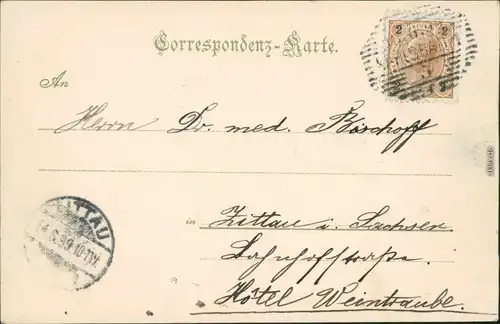 2 2
Correspondenz-Karte.
An
Herrn Dr. med. Bischoff
in Zittau i. Sachsen
Bahnhofstraße.
Hôtel Weintraube.
ZITTAU